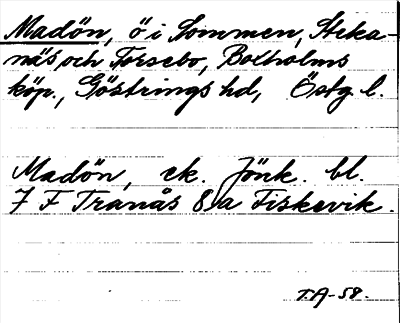 Madön, ö i Sommen, Steka-
näs och Forsebo, Boxholms
köp., Göstrings hd, Östg. l.
Madön, ek. Jönk. bl.
7 F Tranås 8 a Fiskevik.
T.A-58.